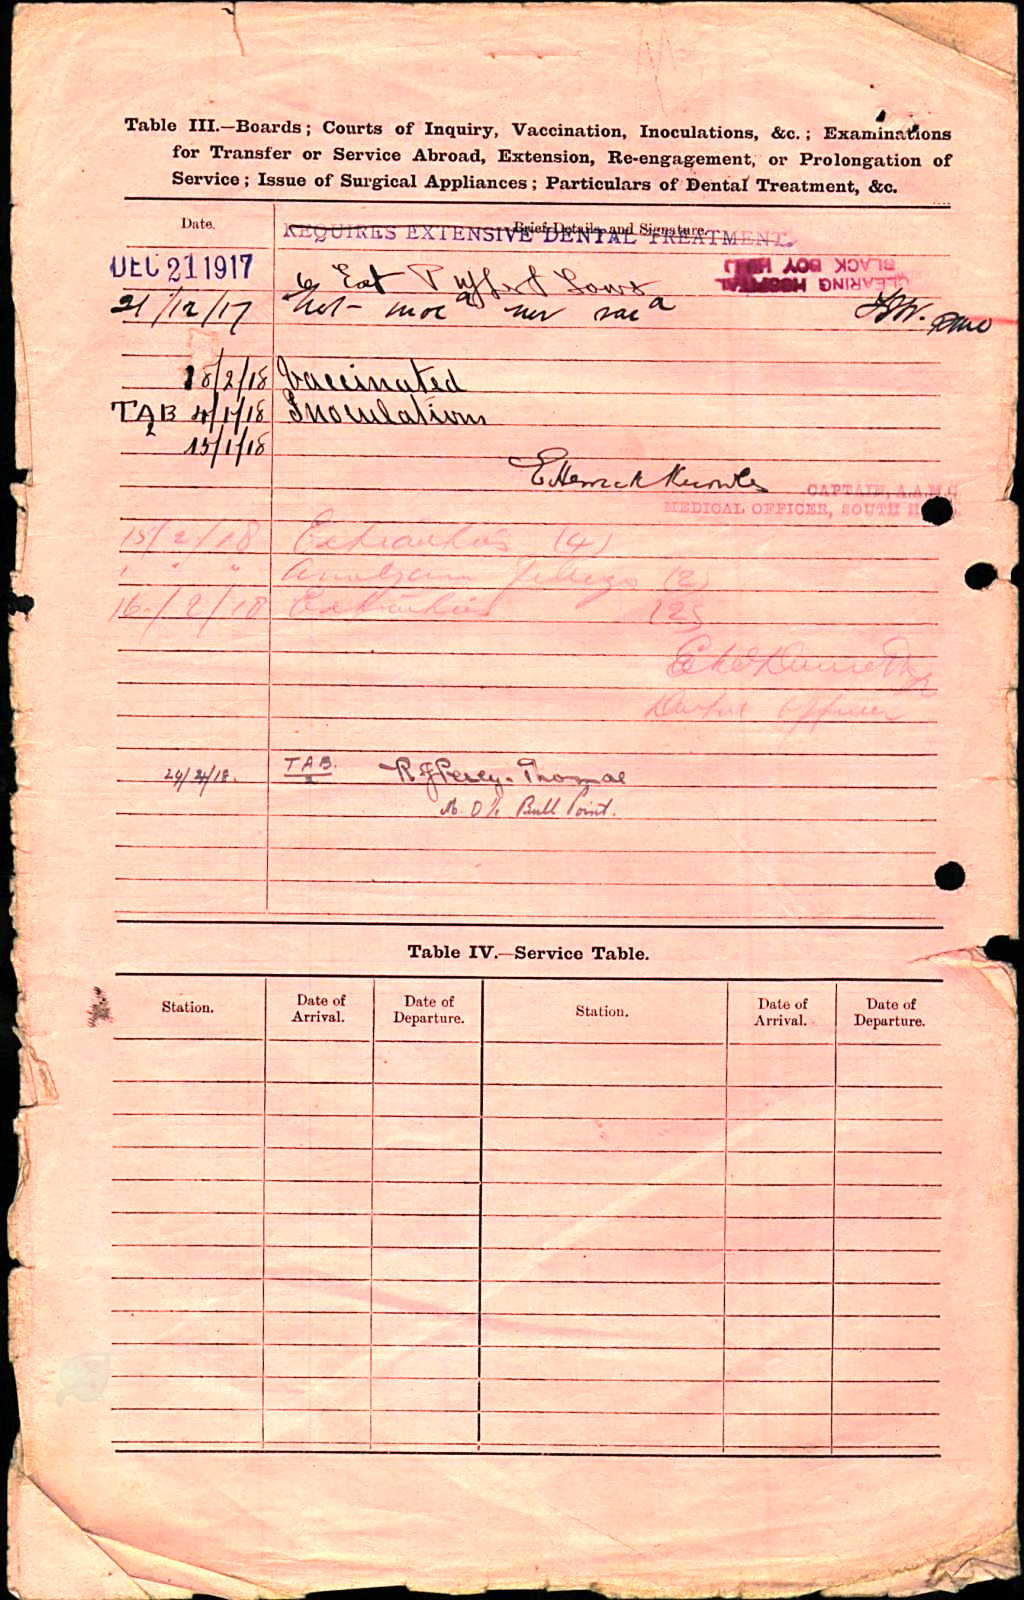 Table III.—Boards; Courts of Inquiry, Vaccination, Inoculations, &c.; Examinations
for Transfer or Service Abroad, Extension, Re-engagement, or Prolongation of
Service; Issue of Surgical Appliances; Particulars of Dental Treatment, &c.
Date. Brief Details and Signature.
REQUIRES EXTENSIVE DENTAL TREATMENT.
DEC 21 1917
6 Ext
CLEARING HOSPITAL
BLACK BOY HILL
21/12/17
18/2/18 Vaccinated
TAB 4/1/18 Inoculations
2
15/1/18
CAPTAIN, A.A.M.C.
MEDICAL OFFICER, SOUTH
15/2/18 Extractions (4)
" " " Amalgam Fillings (2)
16/2/18 Extractions (2)
Dental Officer
24/ /18. TAB. Percy-Thomas
2
Bull Point.
Table IV.—Service Table.
Station. Date of Arrival. Date of Departure. Station. Date of Arrival. Date of Departure.